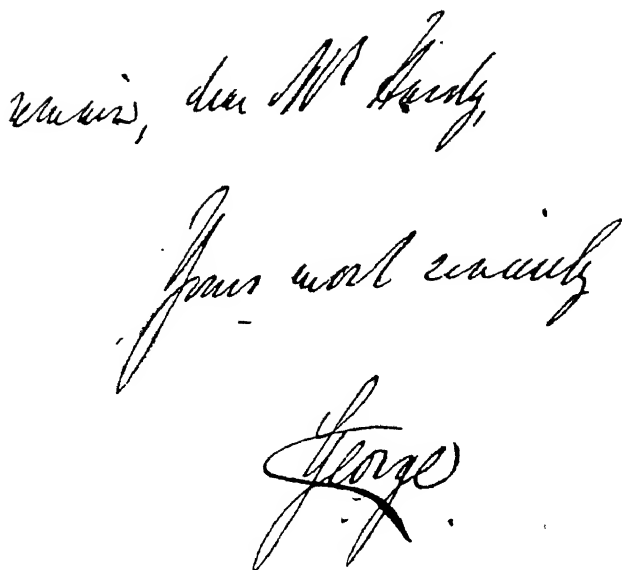 remain, dear Mr Hardy,
Yours most sincerely
George